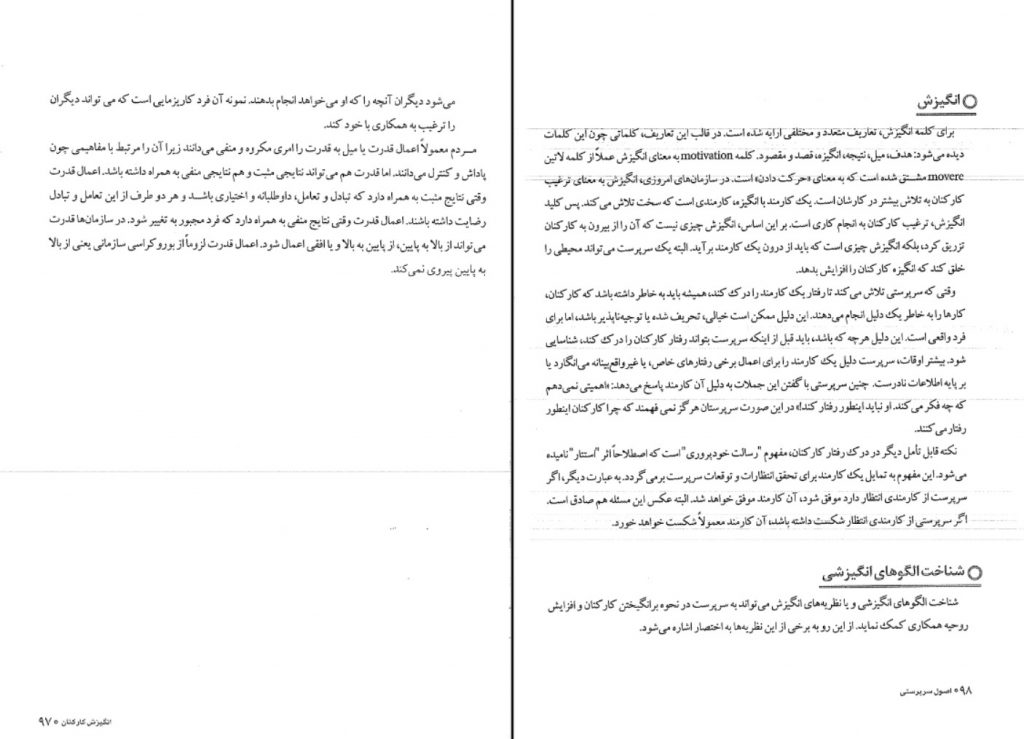 می‌شود دیگران آنچه را که او می‌خواهد انجام بدهند. نمونه آن فرد کاریزمایی است که می تواند دیگران
را ترغیب به همکاری با خود کند.
مردم معمولاً اعمال قدرت یا میل به قدرت را امری مکروه و منفی می‌دانند زیرا آن را مرتبط با مفاهیمی چون
پاداش و کنترل می‌دانند. اما قدرت هم می‌تواند نتایجی مثبت و هم نتایجی منفی به همراه داشته باشد. اعمال قدرت
وقتی نتایج مثبت به همراه دارد که تبادل و تعامل، داوطلبانه و اختیاری باشد و هر دو طرف از این تعامل و تبادل
رضایت داشته باشند. اعمال قدرت وقتی نتایج منفی به همراه دارد که فرد مجبور به تغییر شود. در سازمان‌ها قدرت
می‌تواند از بالا به پایین، از پایین به بالا و یا افقی اعمال شود. اعمال قدرت لزوماً از بوروکراسی سازمانی یعنی از بالا
به پایین پیروی نمی‌کند.
انگیزش کارکنان ۹۷
انگیزش
برای کلمه انگیزش، تعاریف متعدد و مختلفی ارایه شده است. در قالب این تعاریف، کلماتی چون این کلمات
دیده می‌شود: هدف، میل، نتیجه، انگیزه، قصد و مقصود. کلمه motivation به معنای انگیزش عملاً از کلمه لاتین
movere مشتق شده است که به معنای «حرکت دادن» است. در سازمان‌های امروزی، انگیزش به معنای ترغیب
کارکنان به تلاش بیشتر در کارشان است. یک کارمند با انگیزه، کارمندی است که سخت تلاش می‌کند. پس کلید
انگیزش، ترغیب کارکنان به انجام کاری است. بر این اساس، انگیزش چیزی نیست که آن را از بیرون به کارکنان
تزریق کرد، بلکه انگیزش چیزی است که باید از درون یک کارمند برآید. البته یک سرپرست می‌تواند محیطی را
خلق کند که انگیزه کارکنان را افزایش بدهد.
وقتی که سرپرستی تلاش می‌کند تا رفتار یک کارمند را درک کند، همیشه باید به خاطر داشته باشد که کارکنان،
کارها را به خاطر یک دلیل انجام می‌دهند. این دلیل ممکن است خیالی، تحریف شده یا توجیه‌ناپذیر باشد، اما برای
فرد واقعی است. این دلیل هرچه که باشد، باید قبل از اینکه سرپرست بتواند رفتار کارکنان را درک کند، شناسایی
شود. بیشتر اوقات، سرپرست دلیل یک کارمند را برای اعمال برخی رفتارهای خاص، یا غیرواقع‌بینانه می‌انگارد یا
بر پایه اطلاعات نادرست. چنین سرپرستی با گفتن این جملات به دلیل آن کارمند پاسخ می‌دهد: «اهمیتی نمی‌دهم
که چه فکر می‌کند. او نباید اینطور رفتار کند!» در این صورت سرپرستان هرگز نمی فهمند که چرا کارکنان اینطور
رفتار می‌کنند.
نکته قابل تأمل دیگر در درک رفتار کارکنان، مفهوم "رسالت خودپروری" است که اصطلاحاً اثر "استتار" نامیده
می‌شود. این مفهوم به تمایل یک کارمند برای تحقق انتظارات و توقعات سرپرست برمی‌گردد. به عبارت دیگر، اگر
سرپرست از کارمندی انتظار دارد موفق شود، آن کارمند موفق خواهد شد. البته عکس این مسئله هم صادق است.
اگر سرپرستی از کارمندی انتظار شکست داشته باشد، آن کارمند معمولاً شکست خواهد خورد.
شناخت الگوهای انگیزشی
شناخت الگوهای انگیزشی و یا نظریه‌های انگیزش می‌تواند به سرپرست در نحوه برانگیختن کارکنان و افزایش
روحیه همکاری کمک نماید. از این رو به برخی از این نظریه‌ها به اختصار اشاره می‌شود.
۹۸ اصول سرپرستی